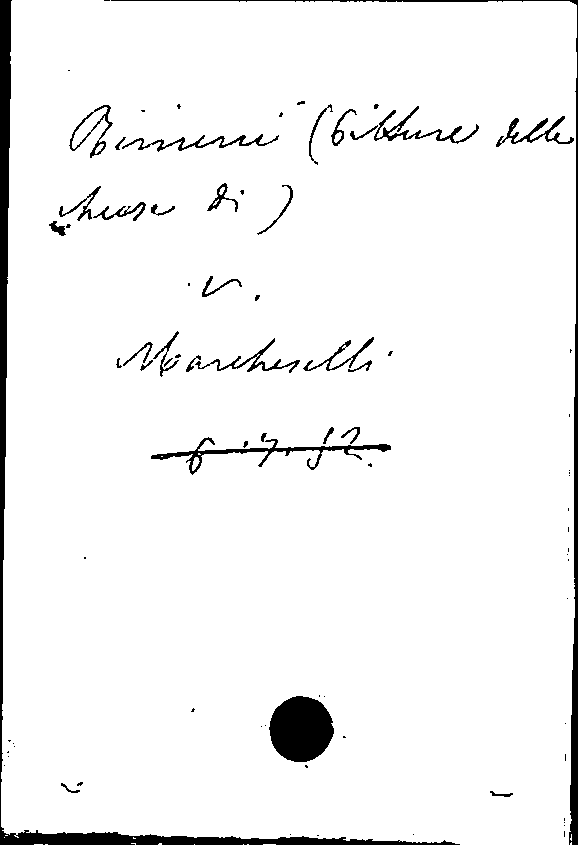 Rimini (Pitture delle
chiese di)
v.
Marcheselli
6.7.52.